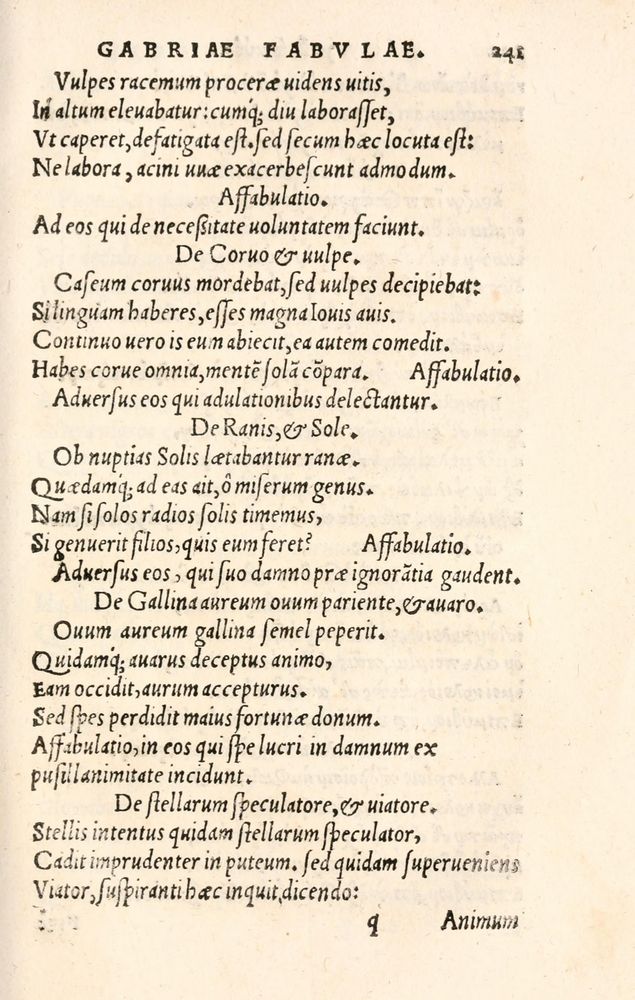 GABRIAE FABVLAE. 241
Vulpes racemum proceræ uidens uitis,
In altum eleuabatur: cumq́; diu laborasſet,
Vt caperet, defatigata eſt. ſed ſecum hæc locuta eſt:
Ne labora, acini uuæ exacerbeſcunt admodum.
Affabulatio.
Ad eos qui de neceßitate uoluntatem faciunt.
De Coruo & uulpe.
Caſeum coruus mordebat, ſed uulpes decipiebat:
Si linguam haberes, eſſes magna Iouis auis.
Continuo uero is eum abiecit, ea autem comedit.
Habes corue omnia, mentē ſolā cōpara. Affabulatio.
Aduerſus eos qui adulationibus delectantur.
De Ranis, & Sole.
Ob nuptias Solis lætabantur ranæ.
Quædamq́; ad eas ait, ô miſerum genus.
Nam ſi ſolos radios ſolis timemus,
Si genuerit filios, quis eum feret? Affabulatio.
Aduerſus eos, qui ſuo damno præ ignorātia gaudent.
De Gallina aureum ouum pariente, & auaro.
Ouum aureum gallina ſemel peperit.
Quidamq́; auarus deceptus animo,
Eam occidit, aurum accepturus.
Sed ſpes perdidit maius fortunæ donum.
Affabulatio, in eos qui ſpe lucri in damnum ex
puſillanimitate incidunt.
De ſtellarum ſpeculatore, & uiatore.
Stellis intentus quidam ſtellarum ſpeculator,
Cadit imprudenter in puteum. ſed quidam ſuperueniens
Viator, ſuſpiranti hæc inquit, dicendo:
q Animum